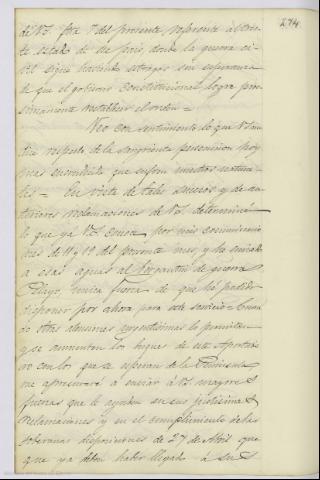 274
de V.S. fha 7 del presente, referente al
estado de ese pais, donde la guerra ci-
vil sigue haciendo estragos sin esperanza
de que el gobierno constitucional logre pro-
simamente restablecer el orden =
Veo con sentimiento lo que V.S. an-
respecto de la sangrienta persecucion hoy
mas encendida que sufren nuestros natura-
les = En vista de tales sucesos y de an-
teriores reclamaciones de V.S. determiné
lo que ya V.S. conoce por mis comunicacio-
nes de 11 y 12 del presente mes, y ha enviado
a esas aguas al bergantin de guerra
unica fuerza de que he podido
disponer por ahora para este servicio = Cuan-
do otras atenciones urgentisimas lo permitan
y se aumenten los buques de este Apostade-
ro con los que se esperan de la Peninsula
me apresuraré a enviar a V.S. mayores
fuerzas que le ayuden en sus justisimas
reclamaciones y en el cumplimiento de las
soberanas disposiciones de 27 de Abril que
que ya deben haber llegado a su